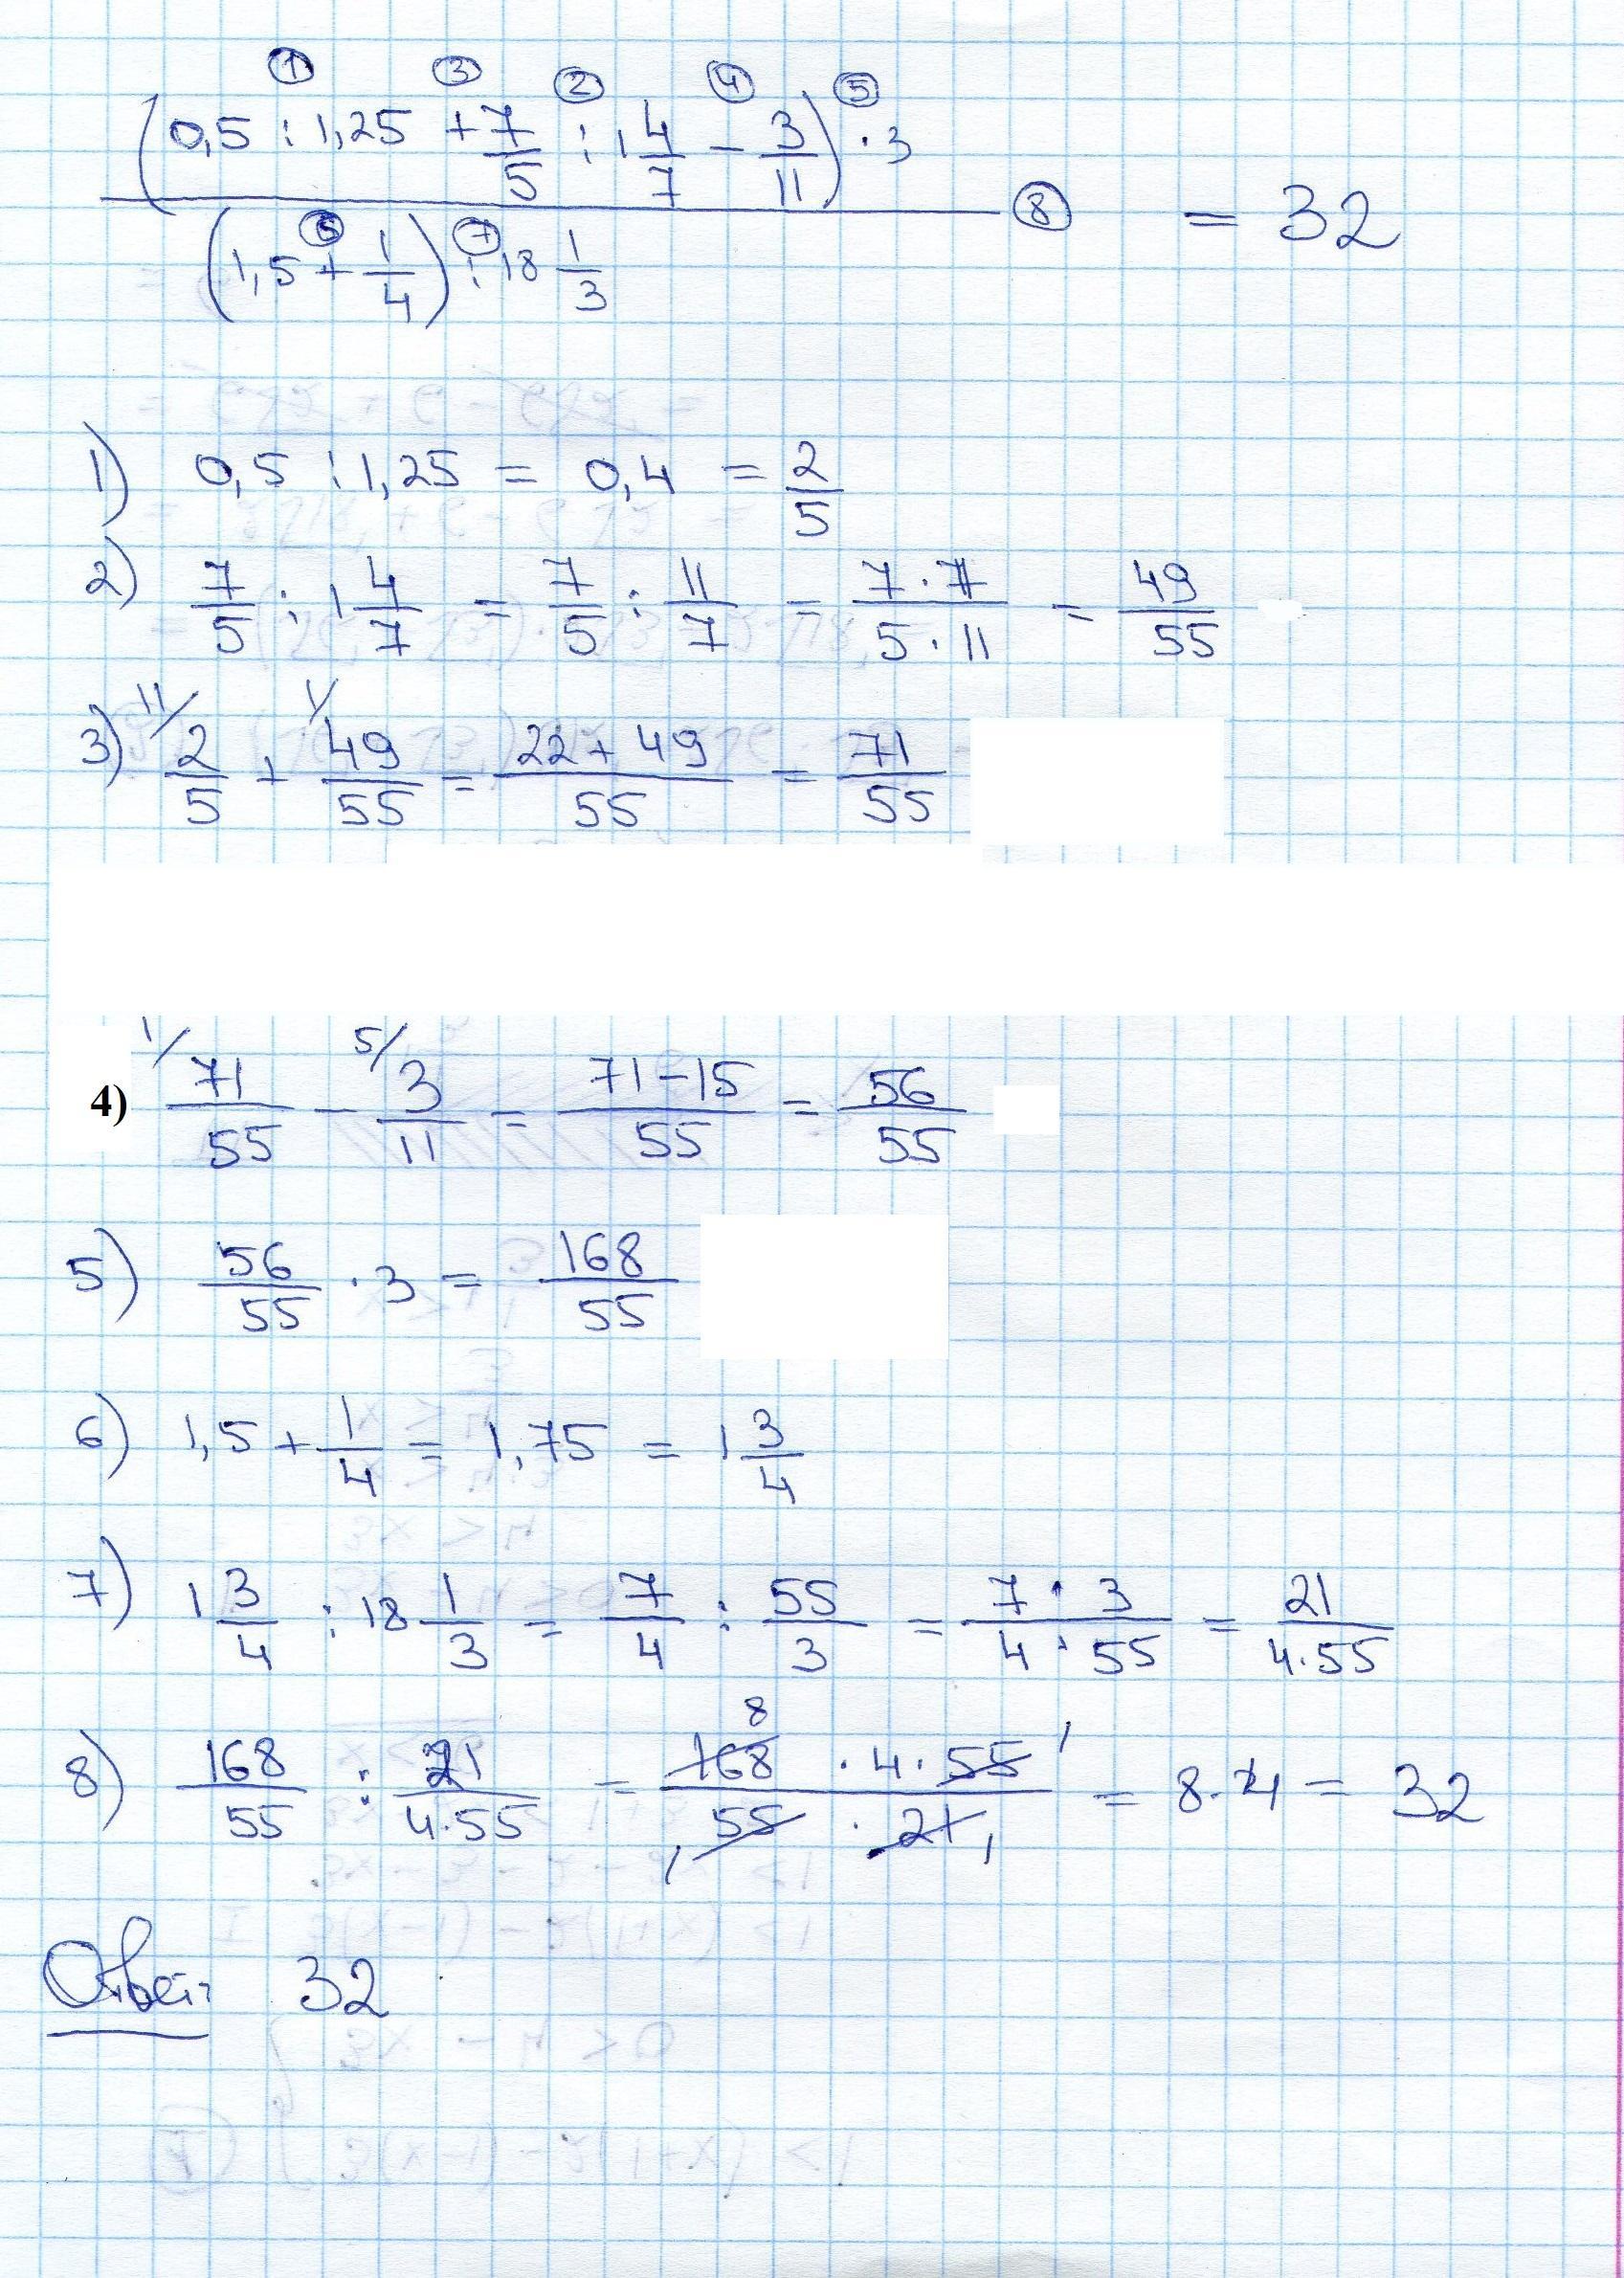 ① ③ ② ④ ⑤
(0,5 : 1,25 + 7/5 : 1 4/7 − 3/11) · 3
⑧ = 32
⑥ ⑦
(1,5 + 1/4) : 18 1/3
1) 0,5 : 1,25 = 0,4 = 2/5
2) 7/5 : 1 4/7 = 7/5 : 11/7 = 7·7/5·11 = 49/55
3) 11/ 2/5 + 1/ 49/55 = 22+49/55 = 71/55
4) 1/ 71/55 − 5/ 3/11 = 71−15/55 = 56/55
5) 56/55 · 3 = 168/55
6) 1,5 + 1/4 = 1,75 = 1 3/4
7) 1 3/4 : 18 1/3 = 7/4 : 55/3 = 7·3/4·55 = 21/4·55
8) 168/55 : 21/4·55 = 168 8 · 4 · 55 1/55 1 · 21 1 = 8·4 = 32
Ответ: 32